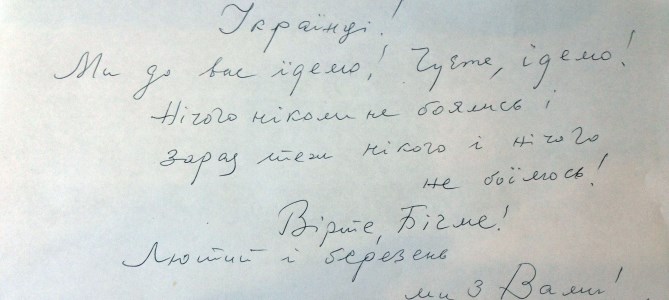 Українці!
Ми до вас їдемо! Чуєте, їдемо!
Нічого ніколи не боялись і
зараз теж нікого і нічого
не боїмось!
Вірте, Бігме!
Лютий і березень
ми з Вами!